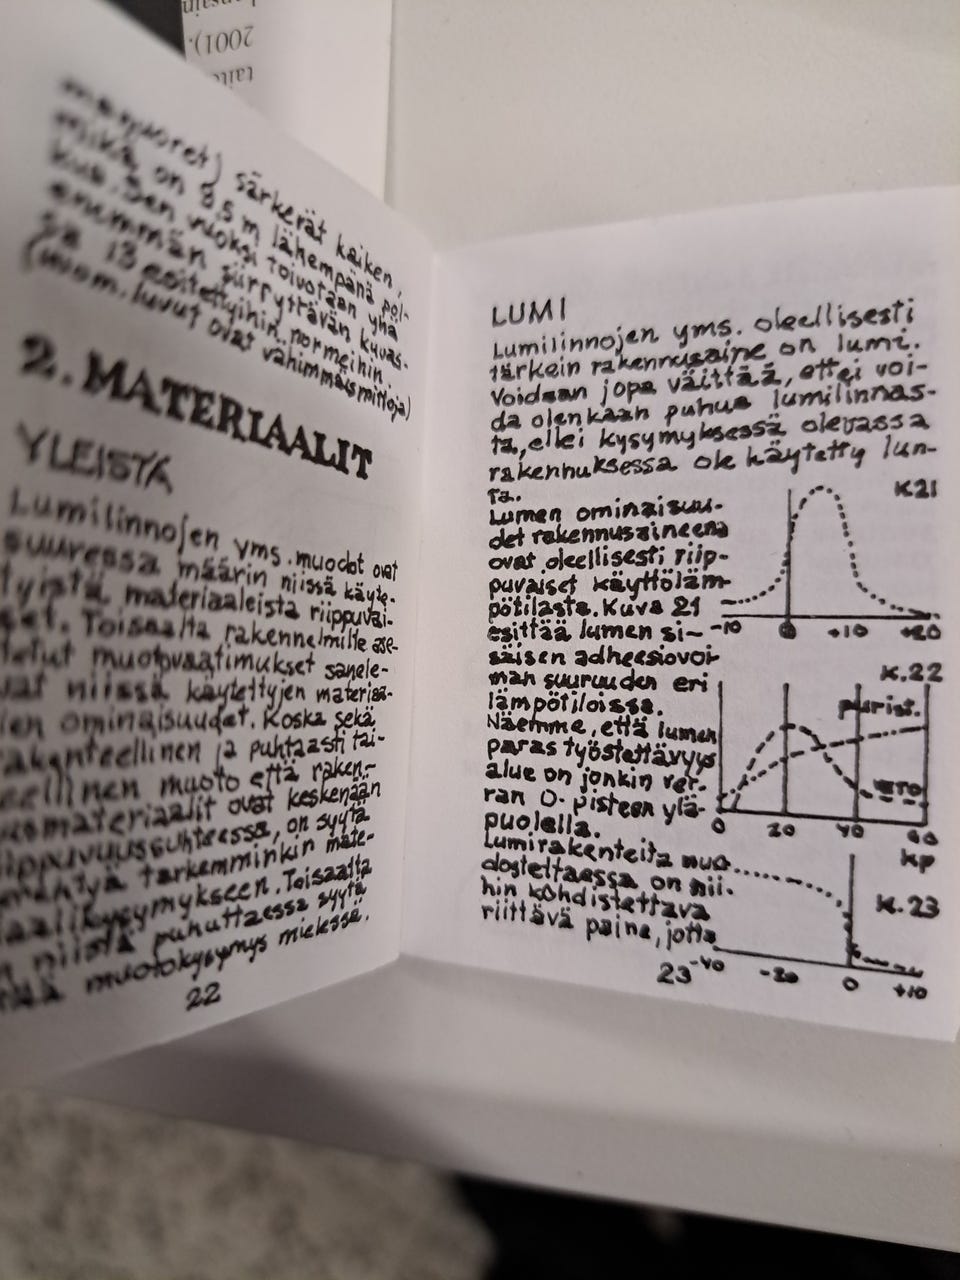 2001).
manuoret) särkevät kaiken,
mikä on 8,5 m lähempänä pol-
kua. Sen vuoksi toivotaan yhä
enemmän siirryttävän kuvas-
sa 13 esitettyihin normeihin.
(huom. luvut ovat vähimmäismittoja)
2. MATERIAALIT
YLEISTÄ
Lumilinnojen yms. muodot ovat
suuressa määrin niissä käyte-
tyistä materiaaleista riippuvai-
set. Toisaalta rakennelmille ase-
tetut muotovaatimukset sanele-
vat niissä käytettyjen materiaa-
lien ominaisuudet. Koska sekä
rakenteellinen ja puhtaasti tai-
teellinen muoto että raken-
nusmateriaalit ovat keskenään
riippuvuussuhteessa, on syytä
tarkemminkin mate-
riaalikysymykseen. Toisaalta
niistä puhuttaessa syytä
pitää muotokysymys mielessä.
22
LUMI
Lumilinnojen yms. oleellisesti
tärkein rakennusaine on lumi.
Voidaan jopa väittää, ettei voi-
da olenkaan puhua lumilinnas-
ta, ellei kysymyksessä olevassa
rakennuksessa ole käytetty lun-
ta.
Lumen ominaisuu-
det rakennusaineena
ovat oleellisesti riip-
puvaiset käyttöläm-
pötilasta. Kuva 21
esittää lumen si-
säisen adheesiovoi-
man suuruuden eri
lämpötiloissa.
Näemme, että lumen
paras työstettävyys
alue on jonkin ver-
ran 0-pisteen ylä-
puolella.
Lumirakenteita muo
dostettaessa on nii-
hin kohdistettava
riittävä paine, jotta
K21
-10 0 +10 +20
K.22
purist.
VETO
0 20 40 60
kp
K.23
-40 -20 0 +10
23